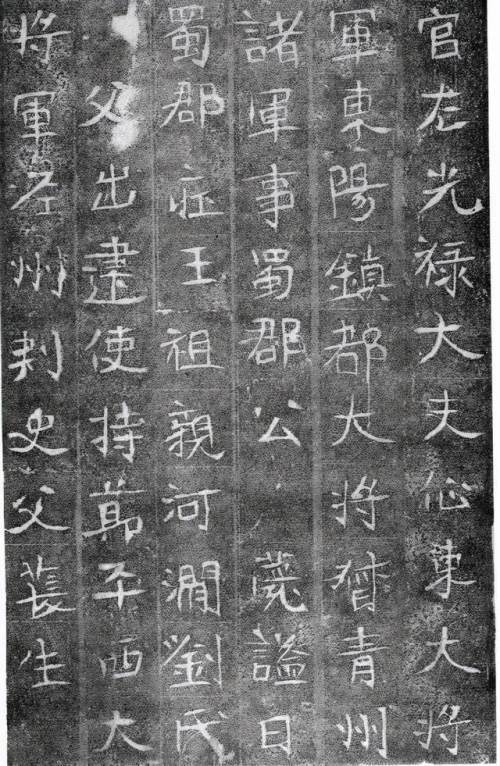 官左光禄大夫征東大将
軍東陽鎮都大将督青州
諸軍事蜀郡公薨謚曰
蜀郡莊王祖親河澗劉氏
父出建使持節平西大
将軍州刺史父萇生